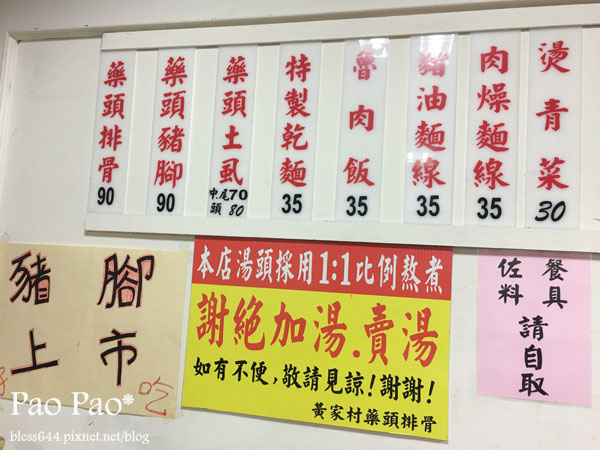 藥頭排骨 90
藥頭豬腳 90
藥頭土虱 中.尾70 頭 80
特製乾麵 35
魯肉飯 35
豬油麵線 35
肉燥麵線 35
燙青菜 30
豬腳
上市
吃
本店湯頭採用1:1比例熬煮
謝絕加湯.賣湯
如有不便,敬請見諒!謝謝!
黃家村藥頭排骨
餐具
佐料
請自取
Pao Pao*
bless644.pixnet.net/blog